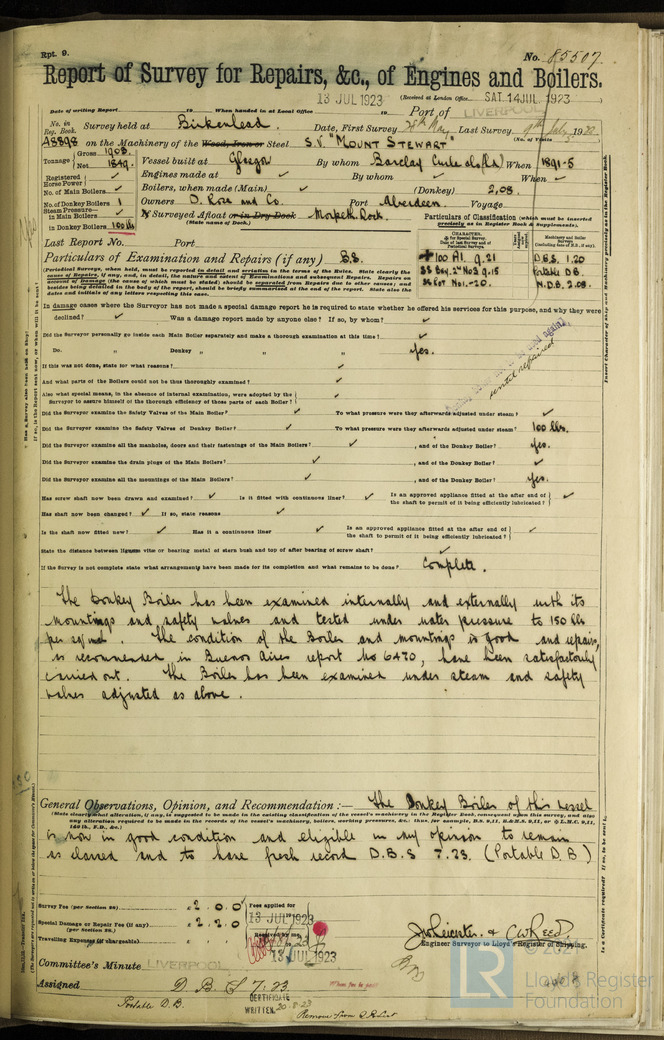 Rpt. 9.
No. 85507.
Report of Survey for Repairs, &c., of Engines and Boilers.
13 JUL 1923 (Received at London Office SAT. 14 JUL. 1923
Date of writing Report to When handed in at Local Office Port of LIVERPOOL
No. in Reg. Book. Survey held at Birkenhead. Date, First Survey Last Survey 9th July 1923.
(No. of Visits
on the Machinery of the Wood, Iron or Steel S.V. "MOUNT STEWART"
Tonnage Gross 1903. Net 1849.
Vessel built at Glasgow By whom Barclay Curle & Co Ld When 1891-5
Registered Horse Power Engines made at ✓ By whom ✓ When ✓
No. of Main Boilers ✓ Boilers, when made (Main) ✓ (Donkey) 2,08.
No. of Donkey Boilers 1 Owners D. Rose and Co. Port Aberdeen. Voyage
Steam Pressure in Main Boilers ✓
in Donkey Boilers 100 lbs
If Surveyed Afloat or in Dry Dock Morpeth Dock.
(State name of Dock.)
Particulars of Classification (which must be inserted precisely as in Register Book & Supplements).
Last Report No. Port
Particulars of Examination and Repairs (if any) B.S.
+100 A1. 9.21
D.B.S. 1.20
Portable D.B.
N.D.B. 2.08.
(Periodical Surveys, when held, must be reported in detail and seriatim in the terms of the Rules. State clearly the
cause of Repairs, if any, and, in detail, the nature and extent of Examinations and subsequent Repairs. Repairs on
account of Damage (the cause of which must be stated) should be separated from Repairs due to other causes; and
besides being detailed in the body of the report, should be briefly summarised at the end of the report. State also the
dates and initials of any letters respecting this case.)
In damage cases where the Surveyor has not made a special damage report he is required to state whether he offered his services for this purpose, and why they were
declined? ✓ Was a damage report made by anyone else? If so, by whom? ✓
Did the Surveyor personally go inside each Main Boiler separately and make a thorough examination at this time? ✓
Do. " Donkey " " " yes.
until repaired
If this was not done, state for what reasons? ✓
And what parts of the Boilers could not be thus thoroughly examined? ✓
Also what special means, in the absence of internal examination, were adopted by the
Surveyor to assure himself of the thorough efficiency of those parts of each Boiler? ✓
Did the Surveyor examine the Safety Valves of the Main Boiler? ✓ To what pressure were they afterwards adjusted under steam? ✓
Did the Surveyor examine the Safety Valves of Donkey Boiler? ✓ To what pressure were they afterwards adjusted under steam? 100 lbs.
Did the Surveyor examine all the manholes, doors and their fastenings of the Main Boilers? ✓ , and of the Donkey Boiler? yes.
Did the Surveyor examine the drain plugs of the Main Boilers? ✓ , and of the Donkey Boiler? ✓
Did the Surveyor examine all the mountings of the Main Boilers? ✓ , and of the Donkey Boiler? yes.
Has screw shaft now been drawn and examined? ✓ Is it fitted with continuous liner? ✓ Is an approved appliance fitted at the after end of
the shaft to permit of it being efficiently lubricated? ✓
Has shaft now been changed? ✓ If so, state reasons ✓
Is the shaft now fitted new? ✓ Has it a continuous liner ✓ Is an approved appliance fitted at the after end of
the shaft to permit of it being efficiently lubricated? ✓
State the distance between lignum vitæ or bearing metal of stern bush and top of after bearing of screw shaft? ✓
If the Survey is not complete state what arrangements have been made for its completion and what remains to be done? Complete.
The Donkey Boiler has been examined internally and externally with its
mountings and safety valves and tested under water pressure to 150 lbs
per sq inch. The condition of the Boiler and mountings is good and repairs,
as recommended in Buenos Aires report No 6420, have been satisfactorily
carried out. The Boiler has been examined under steam and safety
valves adjusted as above.
General Observations, Opinion, and Recommendation:— The Donkey Boiler of this vessel
is now in good condition and eligible in my opinion to remain
as classed and to have fresh record D.B.S 7.23. (Portable D.B)
Survey Fee (per Section 29) £ 2.0.0 Fees applied for
13 JUL 1923
Special Damage or Repair Fee (if any) £ 2.2.0
(per Section 29.)
Received by me,
Travelling Expenses (if chargeable) £
13 JUL 1923
J W Leicester. & C W Reed.
Engineer Surveyor to Lloyd's Register of Shipping.
Committee's Minute LIVERPOOL
Assigned D. B. S 7.23.
Portable D.B.
CERTIFICATE
WRITTEN. 20-8-23
© 2021
LR
Lloyd's Register
Foundation